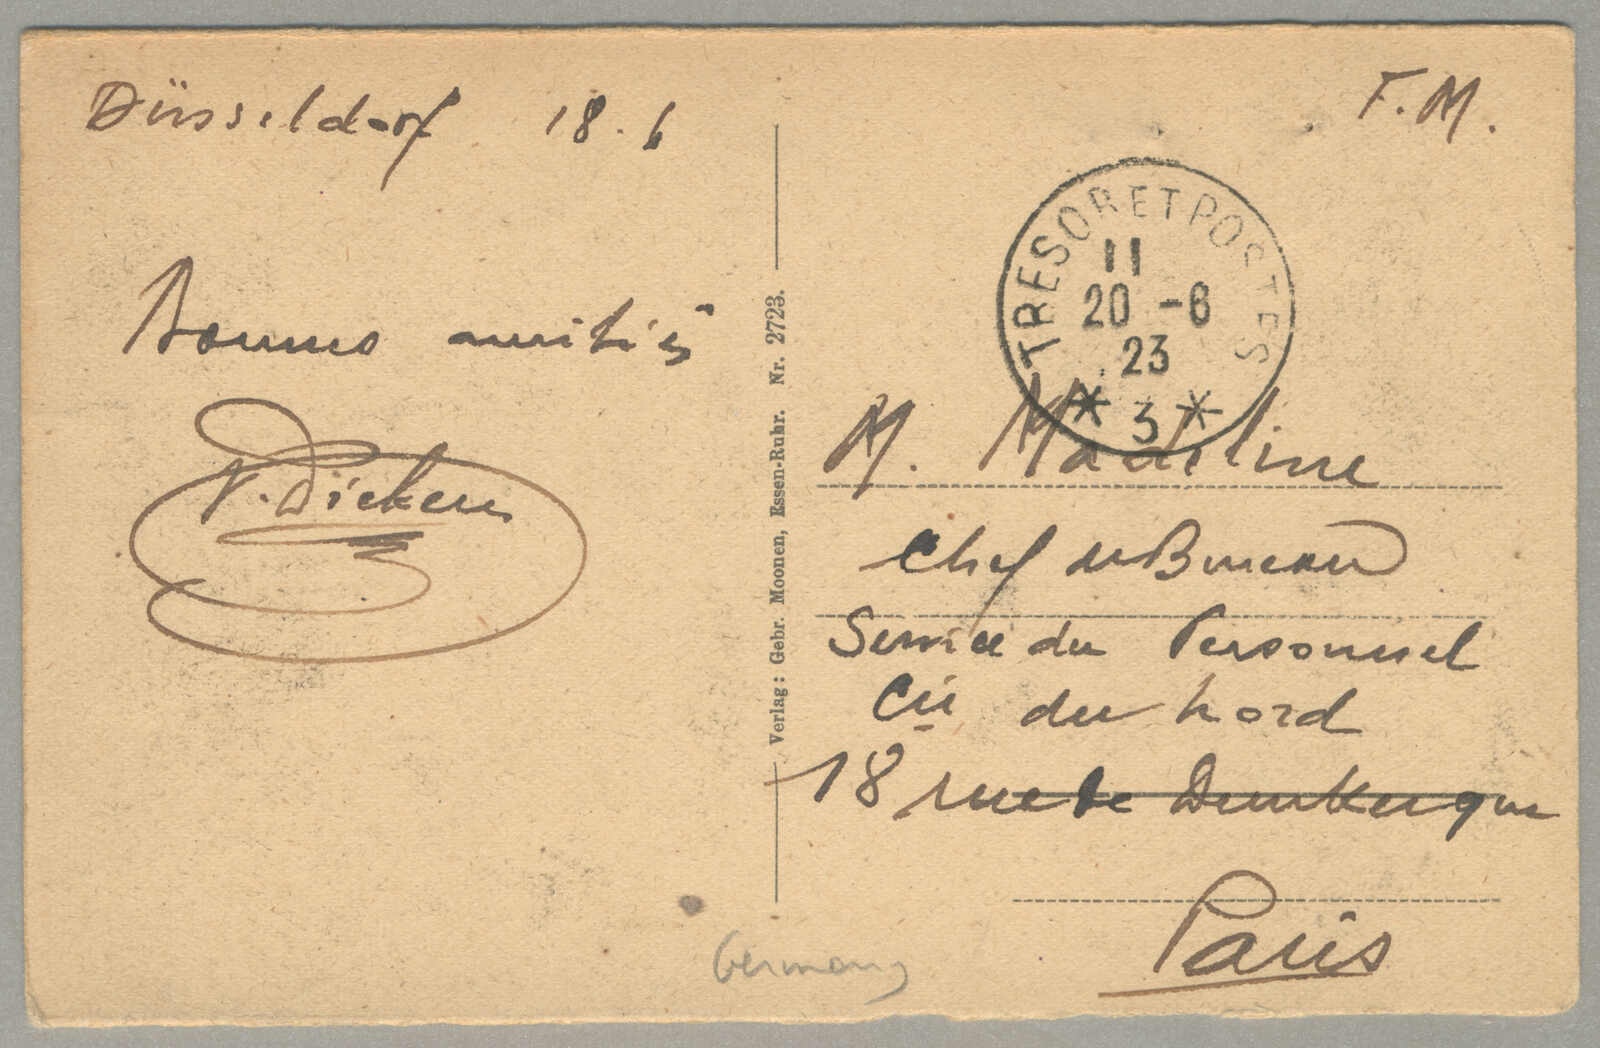 Düsseldorf 18.6
Bonnes amitiés
F. M.
TRESOR ET POSTES
11
20 -6
23
* 3 *
M. Madeline
Chef de Bureau
Service du Personnel
Cie du Nord
18 rue de Dunkerque
Paris
Verlag: Gebr. Moonen, Essen-Ruhr. Nr. 2723.
Germany